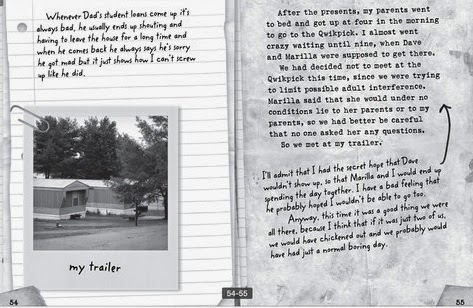 Whenever Dad's student loans come up it's
always bad, he usually ends up shouting and
having to leave the house for a long time and
when he comes back he always says he's sorry
he got mad but it just shows how I can't screw
up like he did.
my trailer
54
After the presents, my parents went
to bed and got up at four in the morning
to go to the Qwikpick. I almost went
crazy waiting until nine, when Dave
and Marilla were supposed to get there.
We had decided not to meet at the
Qwikpick this time, since we were trying
to limit possible adult interference.
Marilla said that she would under no
conditions lie to her parents or to my
parents, so we had better be careful
that no one asked her any questions.
So we met at my trailer.
I'll admit that I had the secret hope that Dave
wouldn't show up, so that Marilla and I would end up
spending the day together. I have a bad feeling that
he probably hoped I wouldn't be able to go too.
Anyway, this time it was a good thing we were
all there, because I think that if it was just two of us,
we would have chickened out and we probably would
have had just a normal boring day.
55
54-55